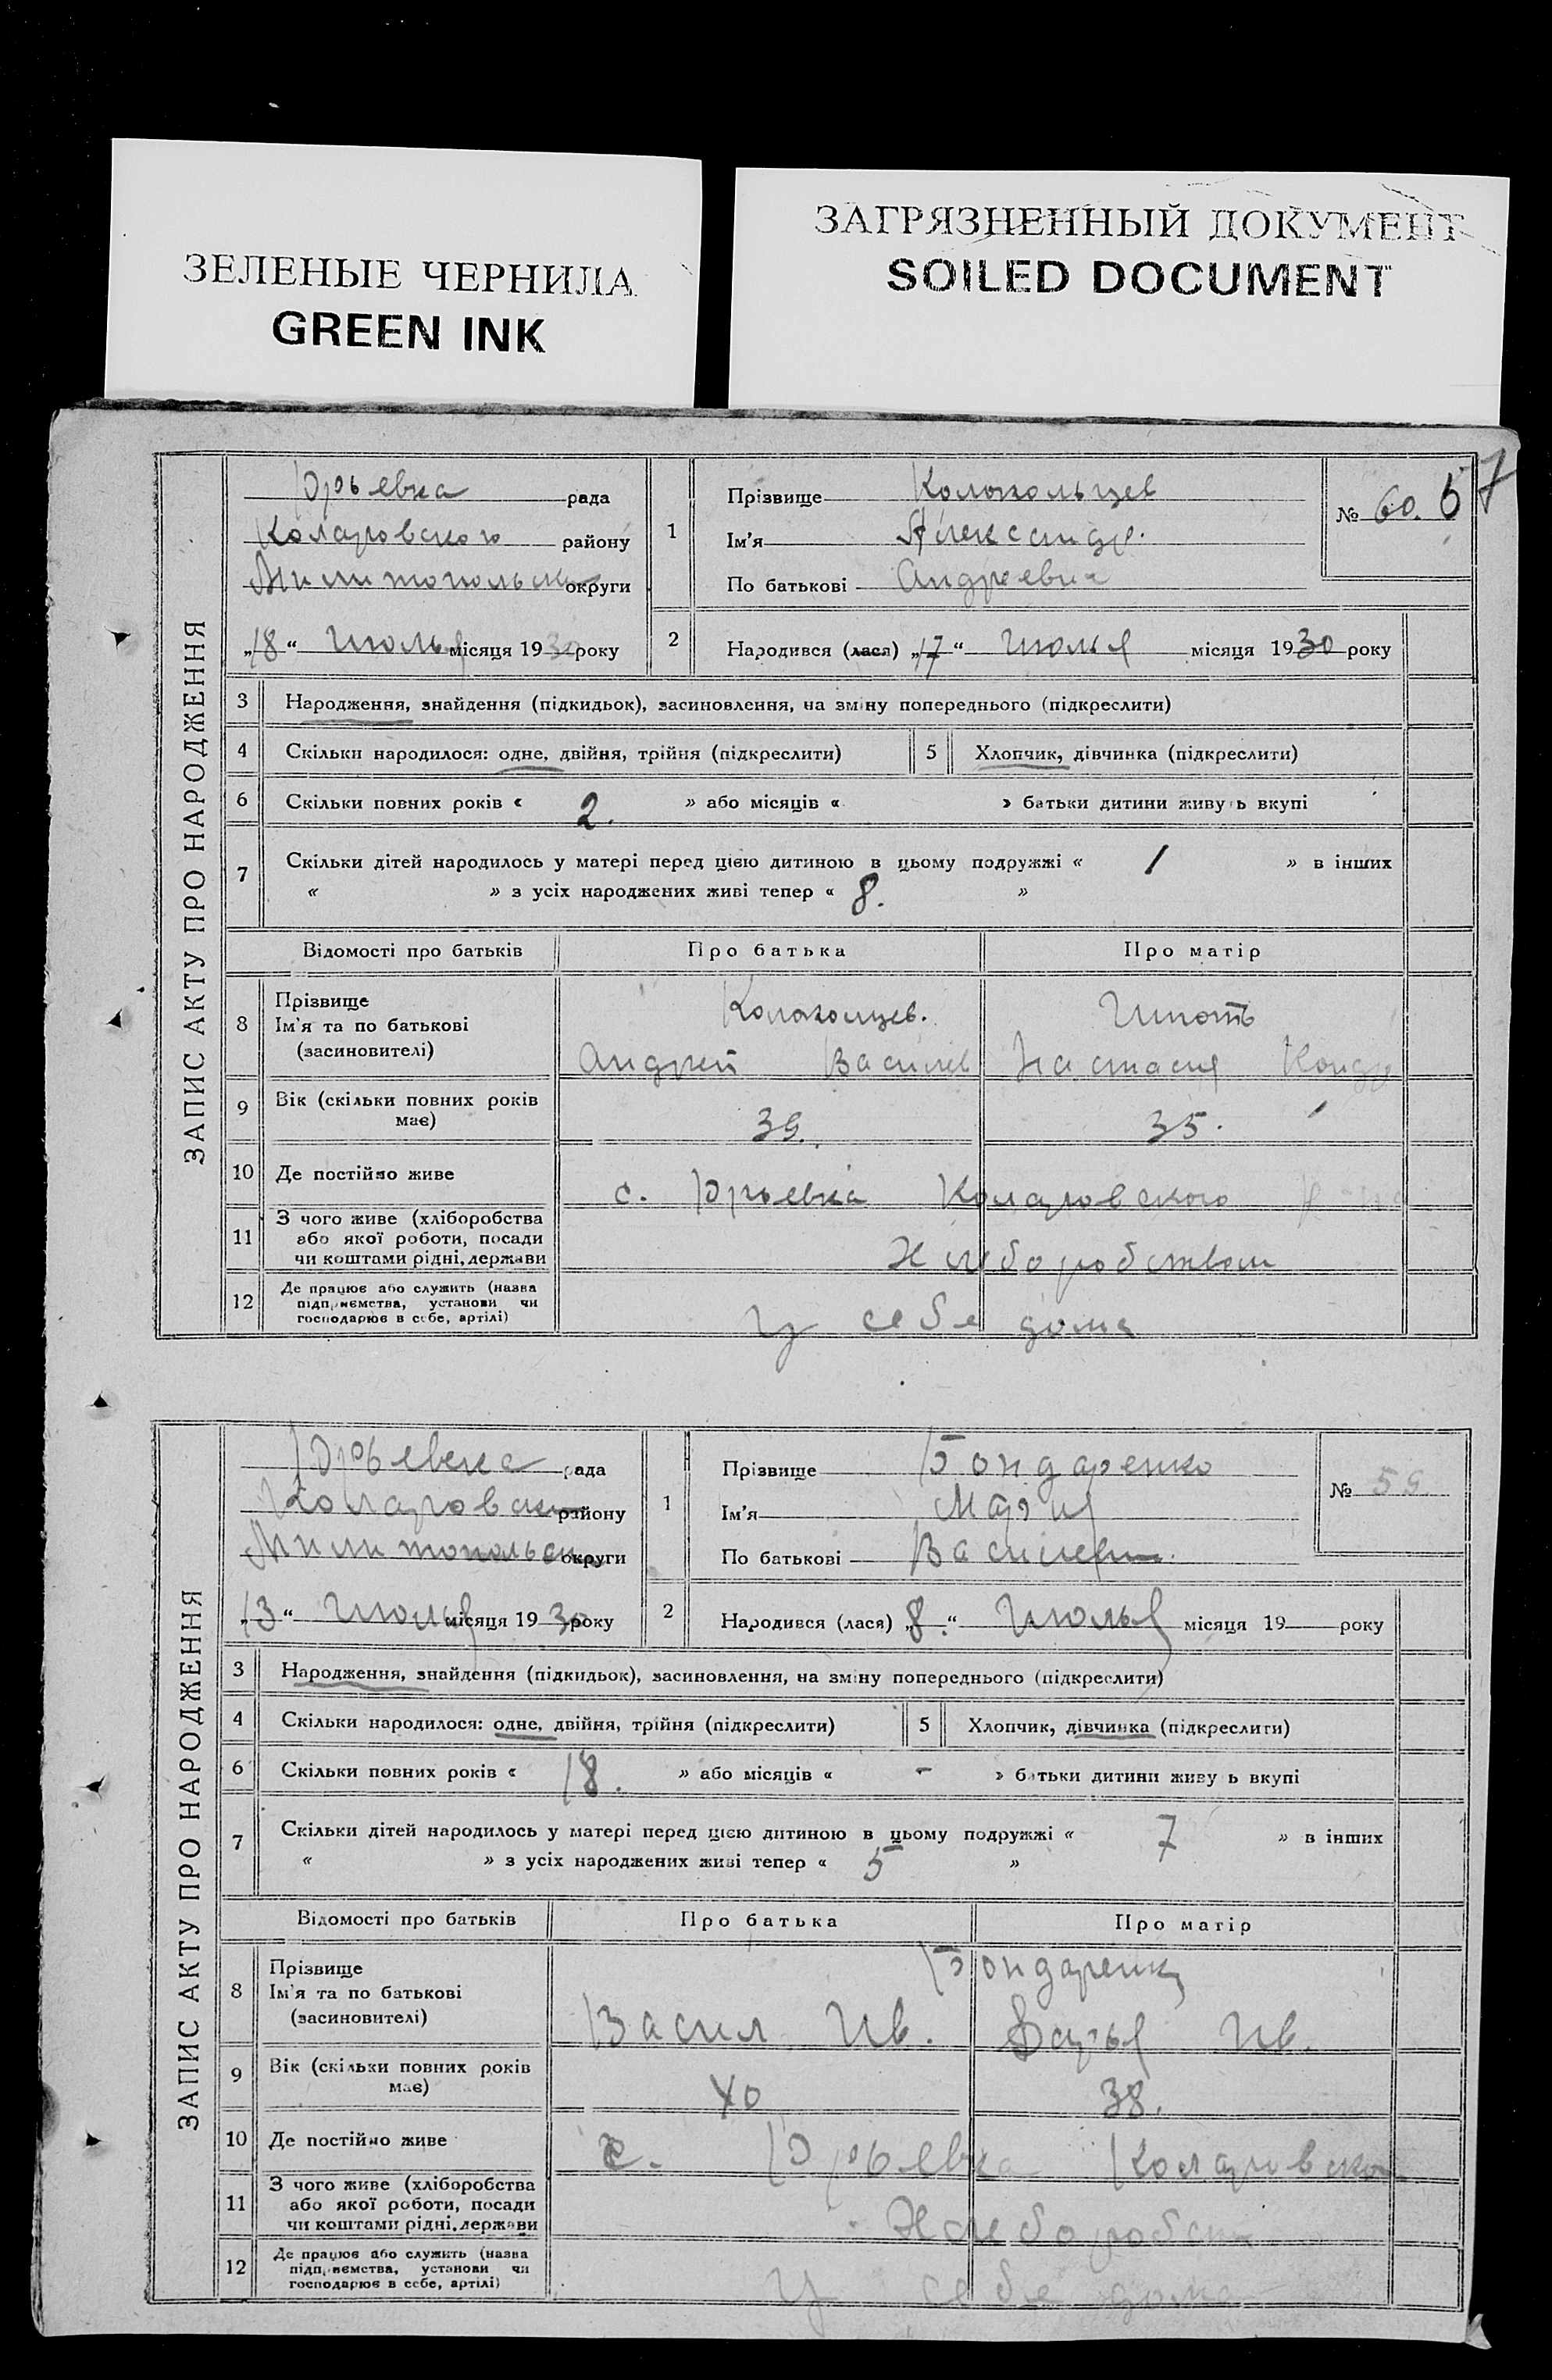 ЗЕЛЕНЫЕ ЧЕРНИЛА
GREEN INK
ЗАГРЯЗНЕННЫЙ ДОКУМЕНТ
SOILED DOCUMENT
57
ЗАПИС АКТУ ПРО НАРОДЖЕННЯ
Юрьевка рада
Коларовского району
округи
„18“ Июля місяця 1930 року
1 Прізвище Колокольцев
Ім'я Александр.
По батькові
№ 60.
2 Народився (лася) „17“ Июля місяця 1930 року
3 Народження, знайдення (підкидьок), засиновлення, на зміну попереднього (підкреслити)
4 Скільки народилося: одне, двійня, трійня (підкреслити) 5 Хлопчик, дівчинка (підкреслити)
6 Скільки повних років « 2. » або місяців « » батьки дитини живуть вкупі
7 Скільки дітей народилось у матері перед цією дитиною в цьому подружжі « 1 » в інших
« » з усіх народжених живі тепер « 8. »
Відомості про батьків Про батька Про матір
8 Прізвище
Ім'я та по батькові
(засиновителі)
Колоколцев.
Андрей Василев Настасия
9 Вік (скільки повних років має) 39. 35.
10 Де постійно живе с. Юрьевка Коларовского
11 З чого живе (хліборобства
або якої роботи, посади
чи коштами рідні, держави
Хлеборобством
12 Де працює або служить (назва
підприємства, установи чи
господарює в себе, артілі)
У себе дома
ЗАПИС АКТУ ПРО НАРОДЖЕННЯ
Юрьевка рада
району
округи
„13“ Июля місяця 1930 року
1 Прізвище Бондаренко
Ім'я Мария
По батькові
№ 59.
2 Народився (лася) „8.“ Июля місяця 19 року
3 Народження, знайдення (підкидьок), засиновлення, на зміну попереднього (підкреслити)
4 Скільки народилося: одне, двійня, трійня (підкреслити) 5 Хлопчик, дівчинка (підкреслити)
6 Скільки повних років « 18. » або місяців « - » батьки дитини живуть вкупі
7 Скільки дітей народилось у матері перед цією дитиною в цьому подружжі « 7 » в інших
« » з усіх народжених живі тепер « 5 »
Відомості про батьків Про батька Про матір
8 Прізвище
Ім'я та по батькові
(засиновителі)
Бондаренк
Васил Ив. Дарья Ив.
9 Вік (скільки повних років має) 40 38.
10 Де постійно живе с. Юрьевка
11 З чого живе (хліборобства
або якої роботи, посади
чи коштами рідні, держави
12 Де працює або служить (назва
підприємства, установи чи
господарює в себе, артілі)
У себе дома